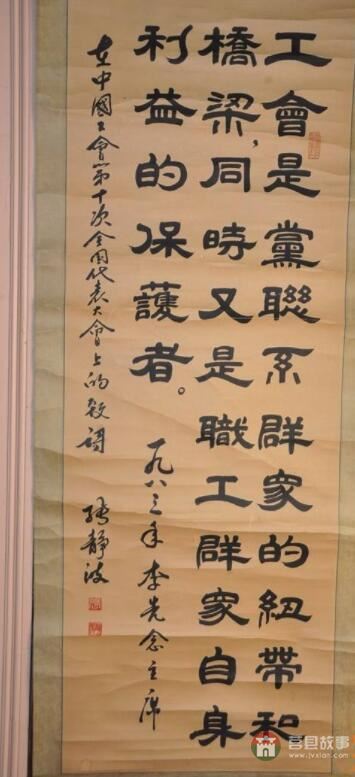 工會是黨聯系群衆的紐帶和
橋梁,同時又是職工群衆自身
利益的保護者。
一九八三年李先念主席
在中國工會第十次全國代表大會上的致詞
張靜波
莒县故事
www.jvxian.com